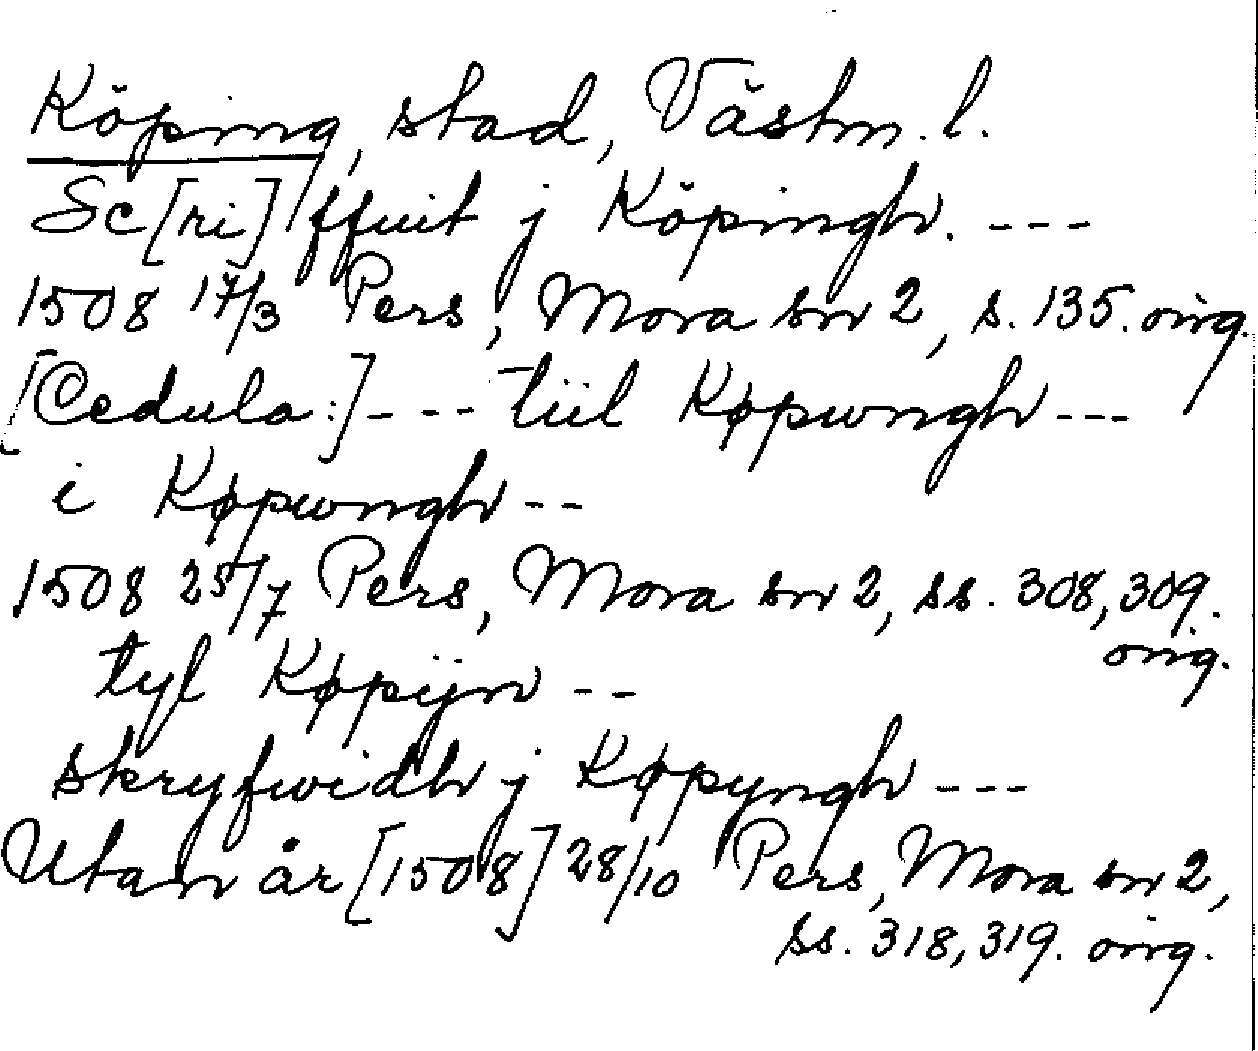 Köping, stad, Västm. l.
Sc[ri]ffuit j Köpingh. ---
1508 17/3 Pers, Mora sn 2, s. 135. orig.
[Cedula:] --- tiil Køpungh ---
i Køpungh --
1508 25/7 Pers, Mora sn 2, ss. 308, 309.
orig.
tyl Køpijn --
skryfwidh j Køpyngh ---
Utan år [1508] 28/10 Pers, Mora sn 2,
ss. 318, 319. orig.